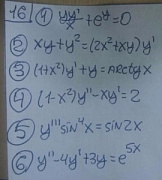 16 ① yy'/x + e^y = 0
② xy + y² = (2x² + xy) y'
③ (1+x²)y' + y = arctgx
④ (1-x²)y'' - xy' = 2
⑤ y''' sin⁴x = sin2x
⑥ y'' - 4y' + 3y = e^{5x}